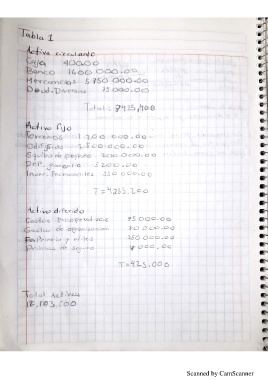 Tabla 1
Activo circulante
Caja 400.00
Banco 1600 000.00
Mercancias 5 750 000.00
Deud. Diversos 75 000.00
Total: 7425,400
Activo fijo
Terrenos 1 200 000.00
Edificios 2 500 000.00
Equipo de 200 000.00
Dep. garantia 5200.00
Inver. Permanentes 350 000.00
T=4,255,200
Activo diferido
Gastos 75 000.00
Gastos de organizacion 70 000.00
250 000.00
de seguro 000.00
T=425,000
Total activos
Scanned by CamScanner